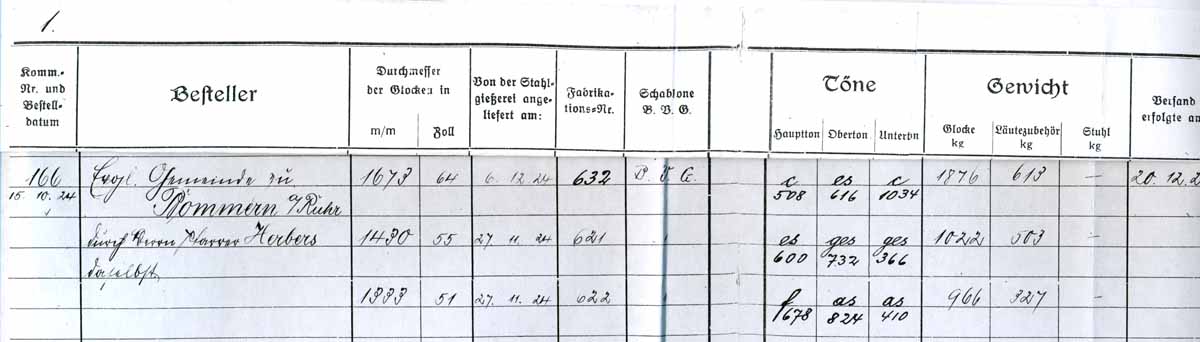 1.
Komm.- Nr. und Bestell- datum | Besteller | Durchmesser der Glocken in m/m | Zoll | Von der Stahl- gießerei ange- liefert am: | Fabrika- tions-Nr. | Schablone B. V. G. | Töne Hauptton | Oberton | Unterton | Gewicht Glocke kg | Läutezubehör kg | Stuhl kg | Versand erfolgte am
166 | Evgl. Gemeinde zu | 1673 | 64 | 6. 12. 24 | 632 | B. V. G. | c | es | c | 1876 | 613 | – | 20. 12. 2
15. 10. 24 | Bommern a/Ruhr | 508 | 616 | 1034
durch Herrn Pfarrer Herbers | 1430 | 55 | 27. 11. 24 | 621 | es | ges | ges | 1022 | 503 | –
daselbst | 600 | 732 | 366
1333 | 51 | 27. 11. 24 | 622 | f | as | as | 966 | 327 | –
678 | 824 | 410